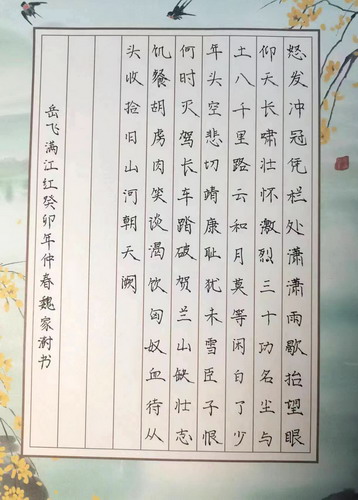 怒发冲冠凭栏处潇潇雨歇抬望眼
仰天长啸壮怀激烈三十功名尘与
土八千里路云和月莫等闲白了少
年头空悲切靖康耻犹未雪臣子恨
何时灭驾长车踏破贺兰山缺壮志
饥餐胡虏肉笑谈渴饮匈奴血待从
头收拾旧山河朝天阙
岳飞满江红癸卯年仲春魏家书